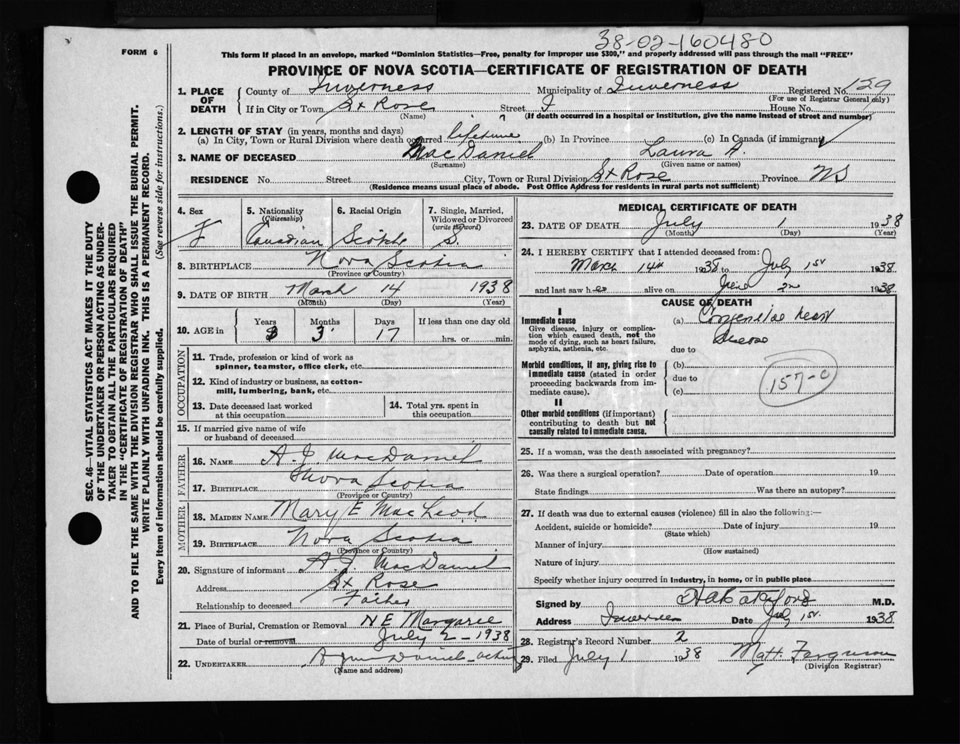 38-02-160480
FORM 6
This form if placed in an envelope, marked "Dominion Statistics—Free, penalty for improper use $300," and properly addressed will pass through the mail "FREE"
PROVINCE OF NOVA SCOTIA—CERTIFICATE OF REGISTRATION OF DEATH
1. PLACE OF DEATH County of Inverness Municipality of Inverness Registered No. 129
(For use of Registrar General only)
If in City or Town St Rose Street House No.
(Name) (If death occurred in a hospital or institution, give the name instead of street and number)
2. LENGTH OF STAY (in years, months and days)
(a) In City, Town or Rural Division where death occurred lifetime (b) In Province (c) In Canada (if immigrant)
3. NAME OF DECEASED MacDaniel Laura A.
(Surname) (Given name or names)
RESIDENCE No. Street City, Town or Rural Division St Rose Province NS
(Residence means usual place of abode. Post Office Address for residents in rural parts not sufficient)
4. Sex 5. Nationality (Citizenship) 6. Racial Origin 7. Single, Married, Widowed or Divorced (write the word)
F Canadian Scotch S.
8. BIRTHPLACE Nova Scotia
(Province or Country)
9. DATE OF BIRTH March 14 1938
(Month) (Day) (Year)
10. AGE in Years Months Days If less than one day old
3 17 hrs. or min.
OCCUPATION
11. Trade, profession or kind of work as spinner, teamster, office clerk, etc.
12. Kind of industry or business, as cotton-mill, lumbering, bank, etc.
13. Date deceased last worked at this occupation
14. Total yrs. spent in this occupation
15. If married give name of wife or husband of deceased
FATHER
16. NAME A. J. MacDaniel
17. BIRTHPLACE Nova Scotia
(Province or Country)
MOTHER
18. MAIDEN NAME Mary E MacLeod
19. BIRTHPLACE Nova Scotia
(Province or Country)
20. Signature of informant A. J. MacDaniel
Address St Rose
Relationship to deceased Father
21. Place of Burial, Cremation or Removal N E Margaree
Date of burial or removal July 2 - 1938
22. UNDERTAKER
(Name and address)
MEDICAL CERTIFICATE OF DEATH
23. DATE OF DEATH July 1 1938
(Month) (Day) (Year)
24. I HEREBY CERTIFY that I attended deceased from:
March 14th 1938 to July 1st 1938
and last saw h er alive on 1938
CAUSE OF DEATH
I
Immediate cause
Give disease, injury or complication which caused death, not the mode of dying, such as heart failure, asphyxia, asthenia, etc.
(a) Congenital heart disease
due to
Morbid conditions, if any, giving rise to immediate cause (stated in order proceeding backwards from immediate cause).
(b)
due to
(c)
157-c
II
Other morbid conditions (if important) contributing to death but not causally related to immediate cause.
25. If a woman, was the death associated with pregnancy?
26. Was there a surgical operation? Date of operation 19
State findings Was there an autopsy?
27. If death was due to external causes (violence) fill in also the following:—
Accident, suicide or homicide? Date of injury 19
(State which)
Manner of injury
(How sustained)
Nature of injury
Specify whether injury occurred in industry, in home, or in public place
Signed by M.D.
Address Inverness Date July 1st 1938
28. Registrar's Record Number 2
29. Filed July 1 1938 Matt. Ferguson
(Division Registrar)
SEC. 46—VITAL STATISTICS ACT MAKES IT THE DUTY
OF THE UNDERTAKER OR PERSON ACTING AS UNDER-
TAKER TO OBTAIN ALL THE PARTICULARS REQUIRED
IN THE "CERTIFICATE OF REGISTRATION OF DEATH"
AND TO FILE THE SAME WITH THE DIVISION REGISTRAR WHO SHALL ISSUE THE BURIAL PERMIT.
WRITE PLAINLY WITH UNFADING INK. THIS IS A PERMANENT RECORD.
Every item of information should be carefully supplied. (See reverse side for instructions.)